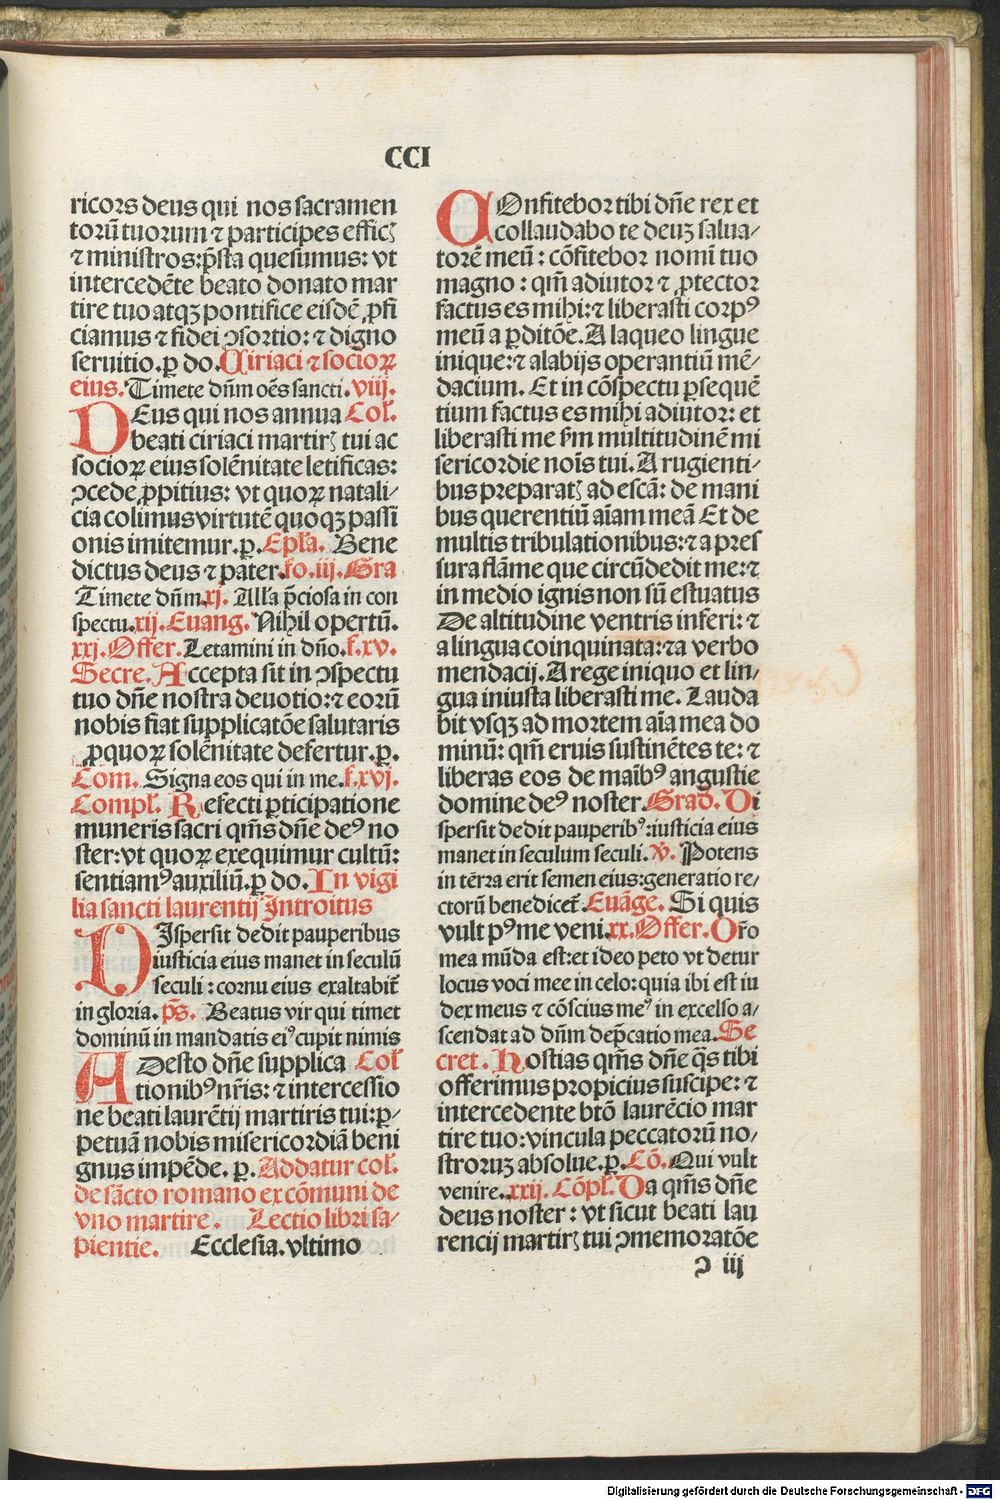 CCI
ricors deus qui nos sacramen
torū tuorum ⁊ participes efficꝭ
⁊ ministros: p̄sta quesumus: vt
intercedēte beato donato mar
tire tuo atqꝫ pontifice eisdē ꝓfi
ciamus ⁊ fidei ↄsortio: ⁊ digno
seruitio. ꝑ do. Ciriaci ⁊ socioꝝ
eius. Timete dn̄m oēs sancti. viii.
DEus qui nos annua Col̄.
beati ciriaci martirꝭ tui ac
socioꝝ eius solēnitate letificas:
ↄcede ꝓpitius: vt quoꝝ natali⸗
cia colimus virtutē quoqꝫ passi
onis imitemur. ꝑ. Epl̄a. Bene
dictus deus ⁊ pater. fo. iij. Gra
Timete dn̄m. xj. All̄a p̄ciosa in con
spectu. xij. Euang. Nihil opertū.
xxj. Offer. Letamini in dn̄o. f. xv.
Secre. Accepta sit in ↄspectu
tuo dn̄e nostra deuotio: ⁊ eorū
nobis fiat supplicatōe salutaris
ꝓ quoꝝ solēnitate defertur. ꝑ.
Com. Signa eos qui in me. f. xvj.
Compl̄. Refecti ꝑticipatione
muneris sacri qm̄s dn̄e deꝰ no
ster: vt quoꝝ exequimur cultū:
sentiamꝰ auxiliū. ꝑ do. In vigi
lia sancti laurentij Introitus
DIspersit dedit pauperibus
iusticia eius manet in seculū
seculi: cornu eius exaltabit̄
in gloria. ps̄. Beatus vir qui timet
dominū in mandatis eiꝰ cupit nimis
ADesto dn̄e supplica Col̄
tionibꝰ nr̄is: ⁊ intercessio
ne beati laurētij martiris tui: ꝑ⸗
petuā nobis misericordiā beni
gnus impēde. ꝑ. Addatur col̄.
de sācto romano ex cōmuni de
vno martire. Lectio libri sa⸗
pientie. Ecclesia. vltimo
COnfitebor tibi dn̄e rex et
collaudabo te deuꝫ salua⸗
torē meū: cōfitebor nomi tuo
magno: qm̄ adiutor ⁊ ꝓtector
factus es mihi: ⁊ liberasti corpꝰ
meū a ꝑditōe. A laqueo lingue
inique: ⁊ a labijs operantiū mē⸗
dacium. Et in cōspectu ꝑsequē
tium factus es mihi adiutor: et
liberasti me ẜm multitudinē mi
sericordie noīs tui. A rugienti⸗
bus preparatꝭ ad escā: de mani
bus querentiū aīam meā Et de
multis tribulationibus: ⁊ a pres
sura flāme que circūdedit me: ⁊
in medio ignis non sū estuatus
De altitudine ventris inferi: ⁊
a lingua coinquinata: ⁊ a verbo
mendacij. A rege iniquo et lin⸗
gua iniusta liberasti me. Lauda
bit vsqꝫ ad mortem aīa mea do
minū: qm̄ eruis sustinētes te: ⁊
liberas eos de manibꝰ angustie
domine deꝰ noster. Grad. Di
spersit dedit pauperibꝰ: iusticia eius
manet in seculum seculi. v̄. Potens
in terra erit semen eius: generatio re⸗
ctorū benedicet̄. Euāge. Si quis
vult pꝰ me veni. xx. Offer. Or̄o
mea mūda est: et ideo peto vt detur
locus voci mee in celo: quia ibi est iu
dex meus ⁊ cōscius meꝰ in excelso a⸗
scendat ad dn̄m dep̄catio mea. Se
cret. Hostias qm̄s dn̄e q̄s tibi
offerimus propicius suscipe: ⁊
intercedente btō laurēcio mar
tire tuo: vincula peccatorū no⸗
stroruꝫ absolue. ꝑ. Cō. Qui vult
venire. xxij. Cōpl̄. Da qm̄s dn̄e
deus noster: vt sicut beati lau
rencij martirꝭ tui ↄmemoratōe
ↄ iij
Digitalisierung gefördert durch die Deutsche Forschungsgemeinschaft - DFG